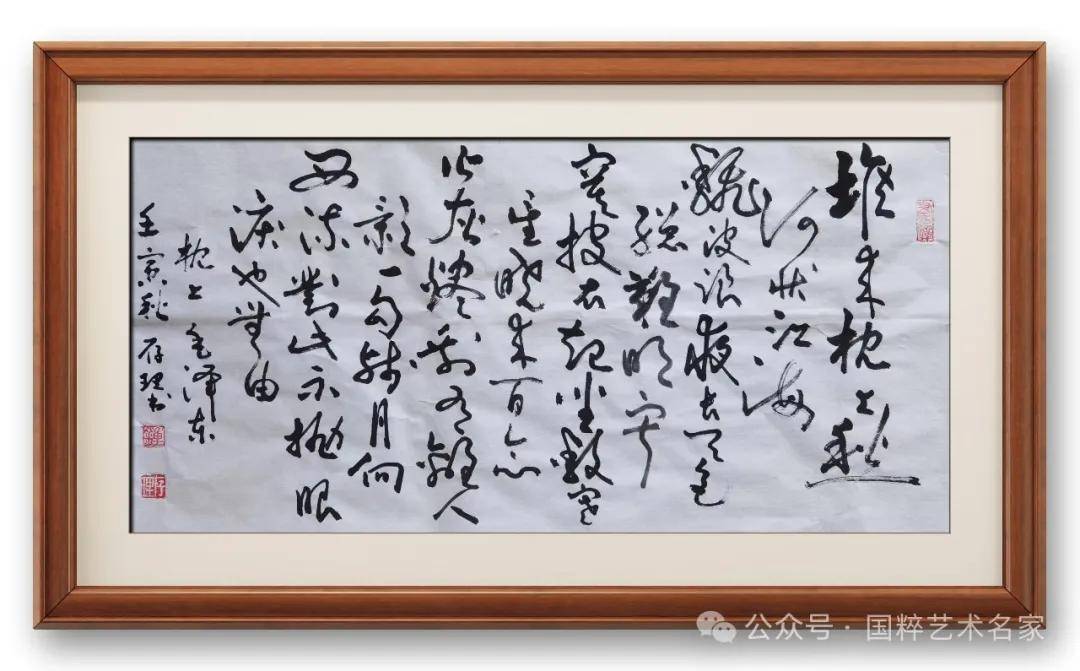 堆来枕上愁
何状江海
翻波浪夜长天色
总難明寂
寞披衣起坐数寒
星晓来百念
都灰烬剩有離人
影一勾残月向
西流對此不抛眼
淚也無由
枕上 毛泽东
壬寅秋 存理书
公众号 · 国粹艺术名家